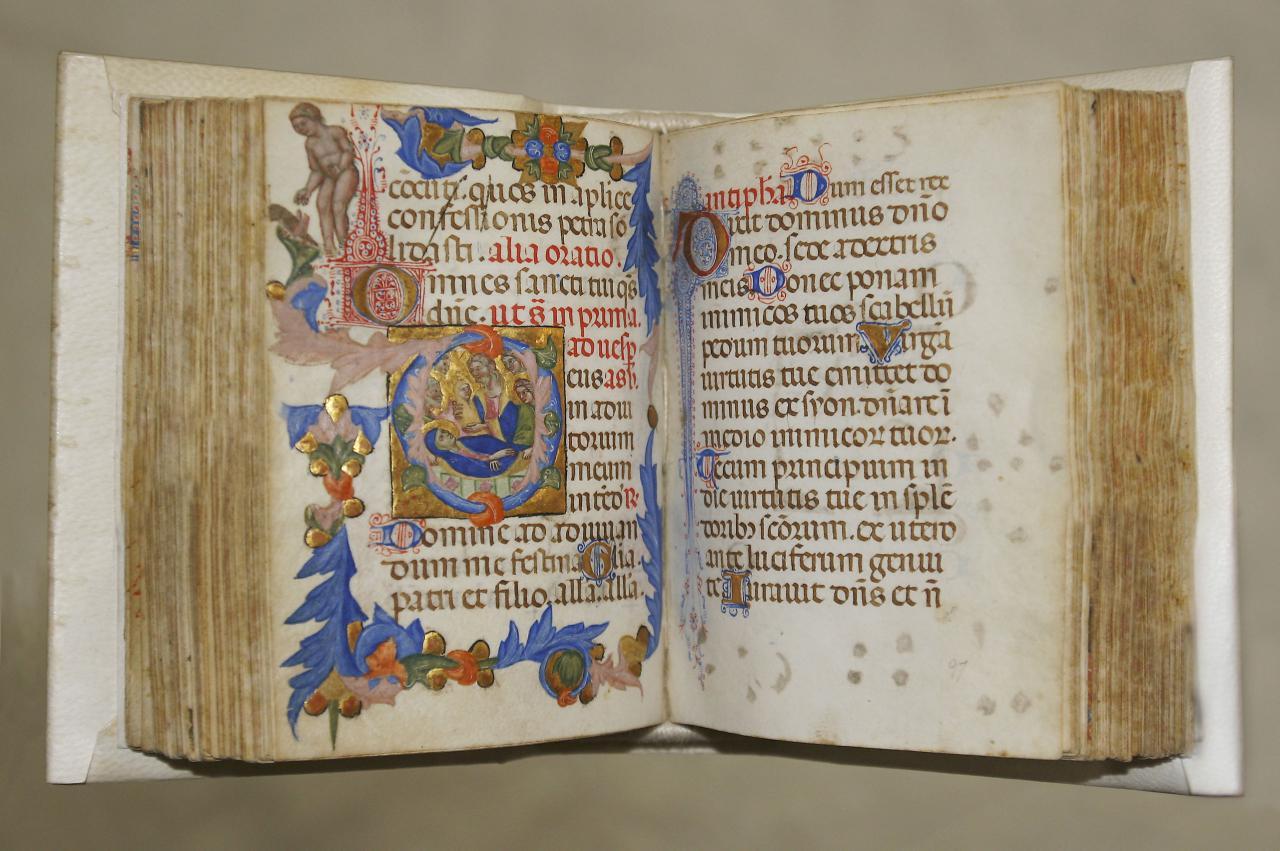 cōcuti: quos in aplice
confessionis petra so
lidasti. alia oratio.
Omnes sancti tui qs
dñe. ut s̄ in prima.
ad uesp̄
Deus asb.
in adiu
torium
meum
intēdeR
Domine ad adiuuan
dum me festina Glia.
patri et filio. alla. alla.
antipha Dum esset rex
Dixit dominus dño
meo. sede a dextris
meis Donec ponam
inimicos tuos scabellū
pedum tuorum Virgā
uirtutis tue emittet do
minus ex syon. dñare ī
medio inimicoꝝ tuoꝝ.
Tecum principium in
die uirtutis tue in splē
doribꝫ scōrum. ex utero
ante luciferum genui
te Iurauit dñs et ñ
97